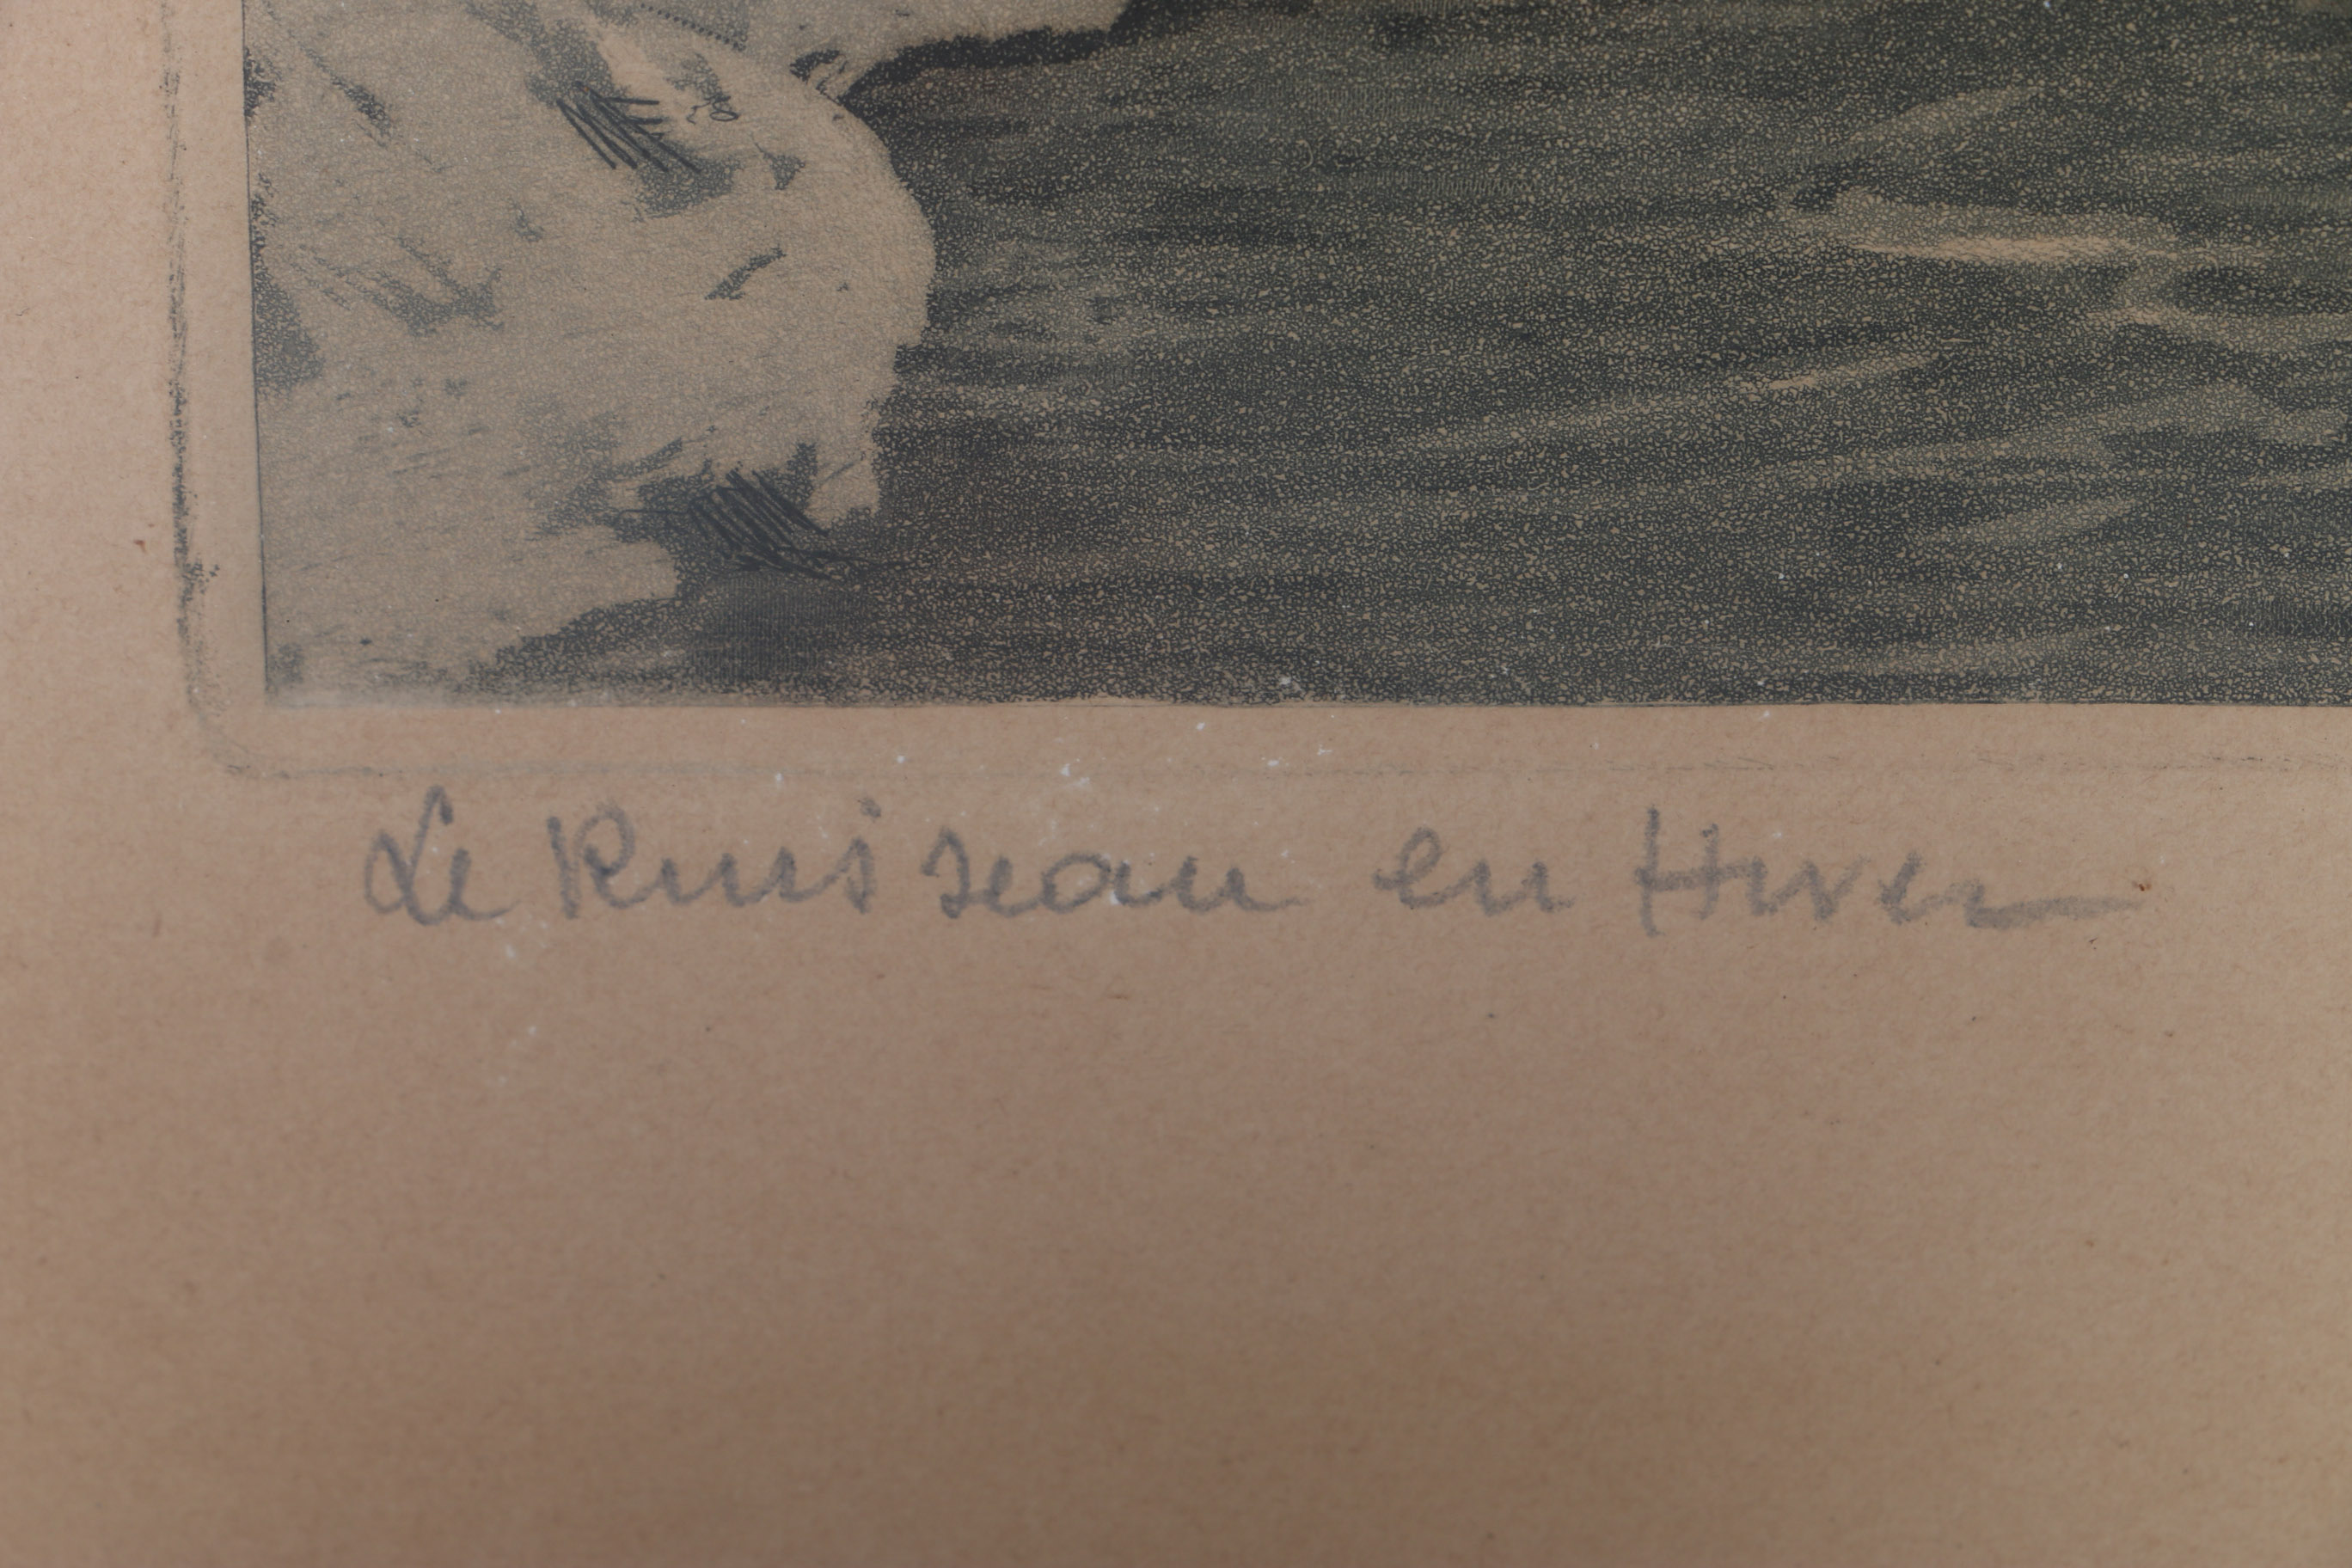 Le Ruisseau en Hiver